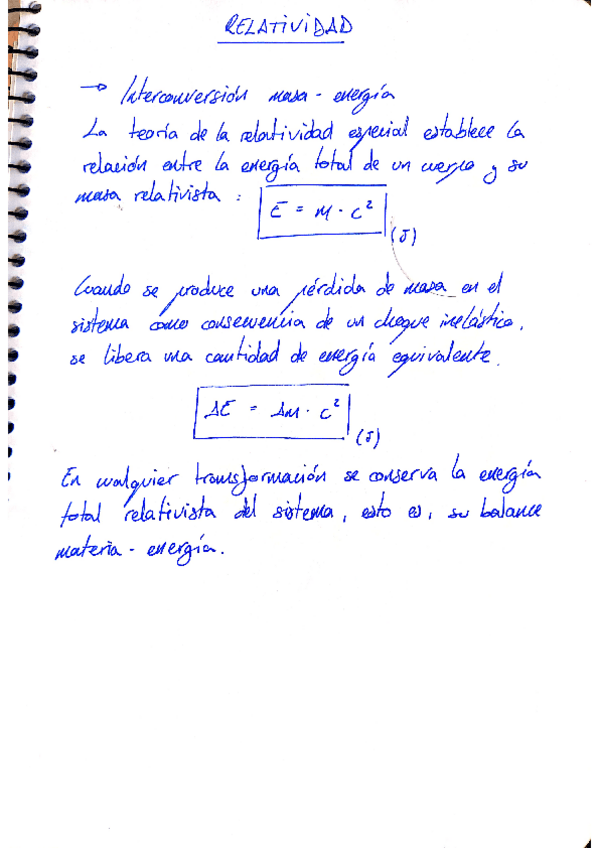 RELATIVIDAD
→ Interconversión masa - energía
La teoría de la relatividad especial establece la
relación entre la energía total de un cuerpo y su
masa relativista :
E = M · c²
(J)
Cuando se produce una pérdida de masa en el
sistema como consecuencia de un choque inelástico,
se libera una cantidad de energía equivalente.
ΔE = ΔM · c²
(J)
En cualquier transformación se conserva la energía
total relativista del sistema, esto es, su balance
materia - energía.